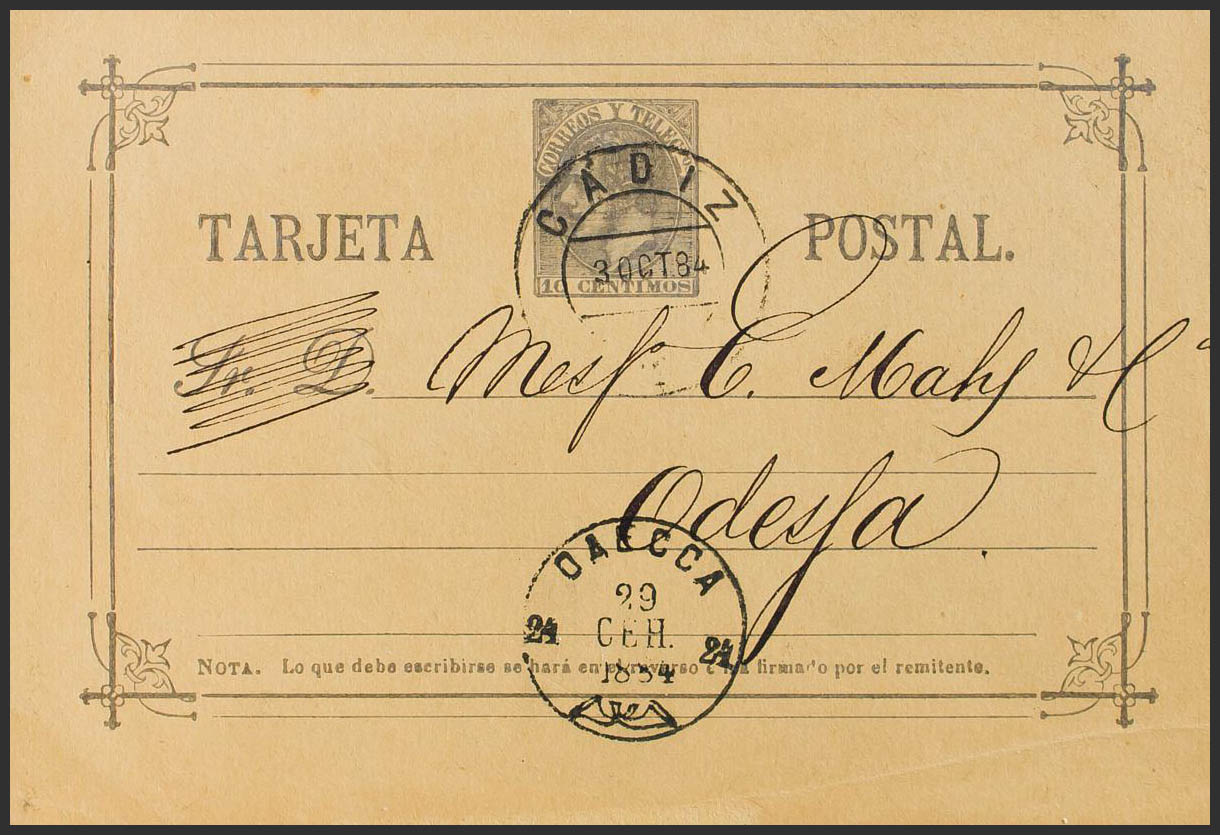 CORREOS Y TELEG
CÁDIZ
3 OCT 84
10 CENTIMOS
TARJETA POSTAL.
Sr. D. Mess.rs C. Mahs & C.ª
Odessa.
ОДЕССА
29
СЕН.
1884
24 24
NOTA. Lo que debe escribirse se hará en el reverso é irá firmado por el remitente.